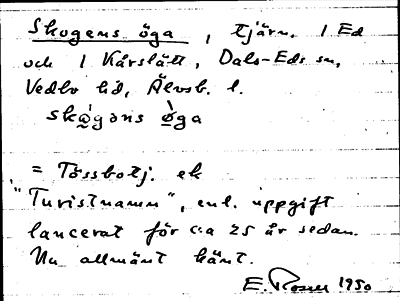 Skogens öga, tjärn. I Ed
och I Kårslätt, Dals-Eds sn,
Vedbo hd, Älvsb. l.
skògəns ò̈ga
= Tössbotj. ek
"Turistnamn", enl. uppgift
lancerat för c:a 25 år sedan.
Nu allmänt känt.
E. Rosell 1950